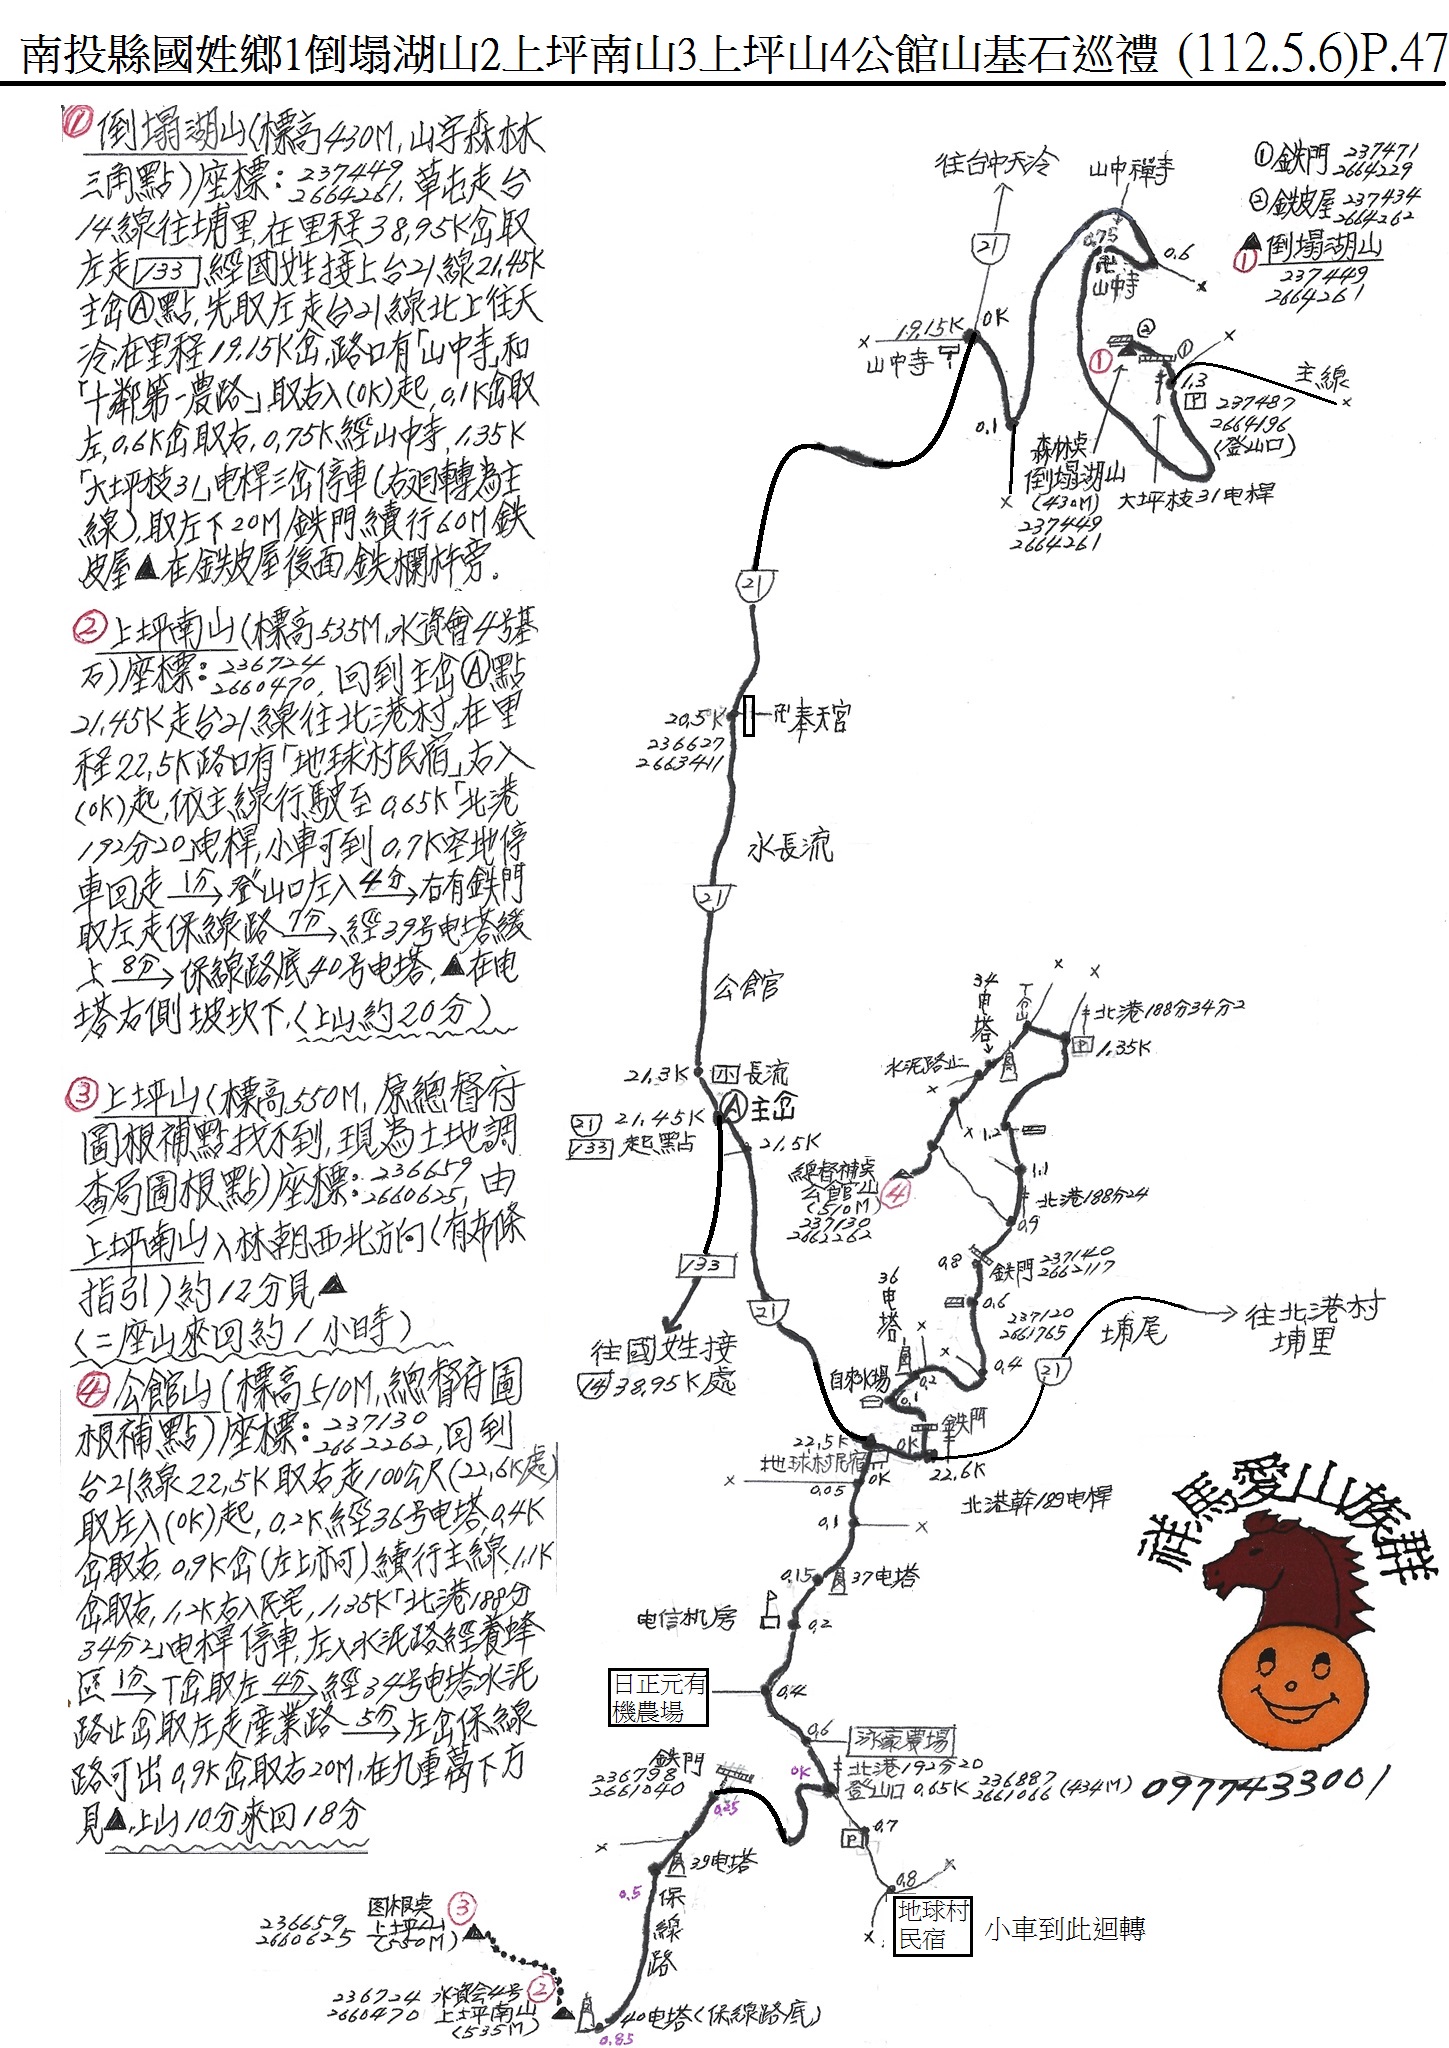 南投縣國姓鄉1倒塌湖山2上坪南山3上坪山4公館山基石巡禮 (112.5.6)P.47
① 倒塌湖山(標高430M,山字森林
三角點)座標:237449 2664261,草屯走台
14線往埔里,在里程38,95K岔取
左走133經國姓接上台21線21,45K
主岔Ⓐ點,先取左走台21線北上往天
冷,在里程19,15K岔,路口有「山中寺」和
「十鄰第一農路」,取右入(0K)起,0,1K岔取
左,0,6K岔取右,0,75K經山中寺,1,35K
「大坪枝31」电桿三岔停車(右迴轉為主
線),取左下20M鉄門續行60M鉄
皮屋▲在鉄皮屋後面鉄欄杆旁。
② 上坪南山(標高535M,水資會4号基
石)座標:236724 2660470,回到主岔Ⓐ點
21,45K走台21線往北港村,在里
程22,5K路口有「地球村民宿」右入
(0K)起,依主線行駛至0,65K「北港
192分20」电桿,小車可到0,7K空地停
車回走 1分→登山口左入 4分→右有鉄門
取左走保線路 7分→經39号电塔緩
上 8分→保線路底40号电塔,▲在电
塔右側坡坎下,(上山約20分)
③ 上坪山(標高550M,原總督府
圖根補點找不到,現為土地調
查局圖根點)座標:236659 2660625,由
上坪南山入林朝西北方向(有布條
指引)約12分見▲
(二座山來回約1小時)
④ 公館山(標高510M,總督府圖
根補點)座標:237130 2662262,回到
台21線22,5K取右走100公尺(22,6K處)
取左入(0K)起,0,2K經36号电塔,0,4K
岔取右,0,9K岔(左上亦可)續行主線,1,1K
岔取右,1,2K右入民宅,1,35K「北港188分
34分2」电桿停車,左入水泥路經養蜂
區 1分→T岔取左 4分→經34号电塔水泥
路止岔取左走産業路 5分→左岔保線
路可出0,9K岔取右20M,在九重葛下方
見▲,上山10分來回18分
往台中天冷
山中禪寺
①鉄門 237471 2664229
②鉄皮屋 237434 2664262
▲倒塌湖山
①
237449
2664261
21
0,75
0,6
卍
山中寺
19,15K
0K
山中寺
②
①
①
1,3
P
237487
2664196
(登山口)
主線
0,1
森林点
倒塌湖山
(430M)
237449
2664261
大坪枝31电桿
21
20,5K
236627
2663411
卍奉天宮
水長流
21
公館
21,3K
长流
21
21,45K
Ⓐ主岔
133
起點
21,5K
133
往國姓接
14 38,95K處
21
34电塔
水泥路止
北港188分34分2
P
1,35K
1,2
1,1
北港188分24
0,9
總督補点
公館山
(510M)
237130
2662262
④
0,8
鉄門 237140 2662117
0,6
237120
2661765
36电塔
0,4
0,2
自來水場
0,1
鉄門
0K
22,5K
22,6K
21
埔尾
往北港村
埔里
地球村民宿
0K
0,05
北港幹189电桿
0,1
0,15
37电塔
电信机房
0,2
日正元有
機農場
0,4
0,6
北港192分20
登山口 0,65K 236887 2661066 (434M)
0K
鉄門
236798
2661040
0,25
0,7
P
0,8
39电塔
0,5
保線路
地球村
民宿
小車到此迴轉
图根点
236659
2660625
上坪山
(550M)
③
236724
2660470
水資会4号
上坪南山
(535M)
②
40电塔(保線路底)
0,85
祥馬愛山族群
0977433001